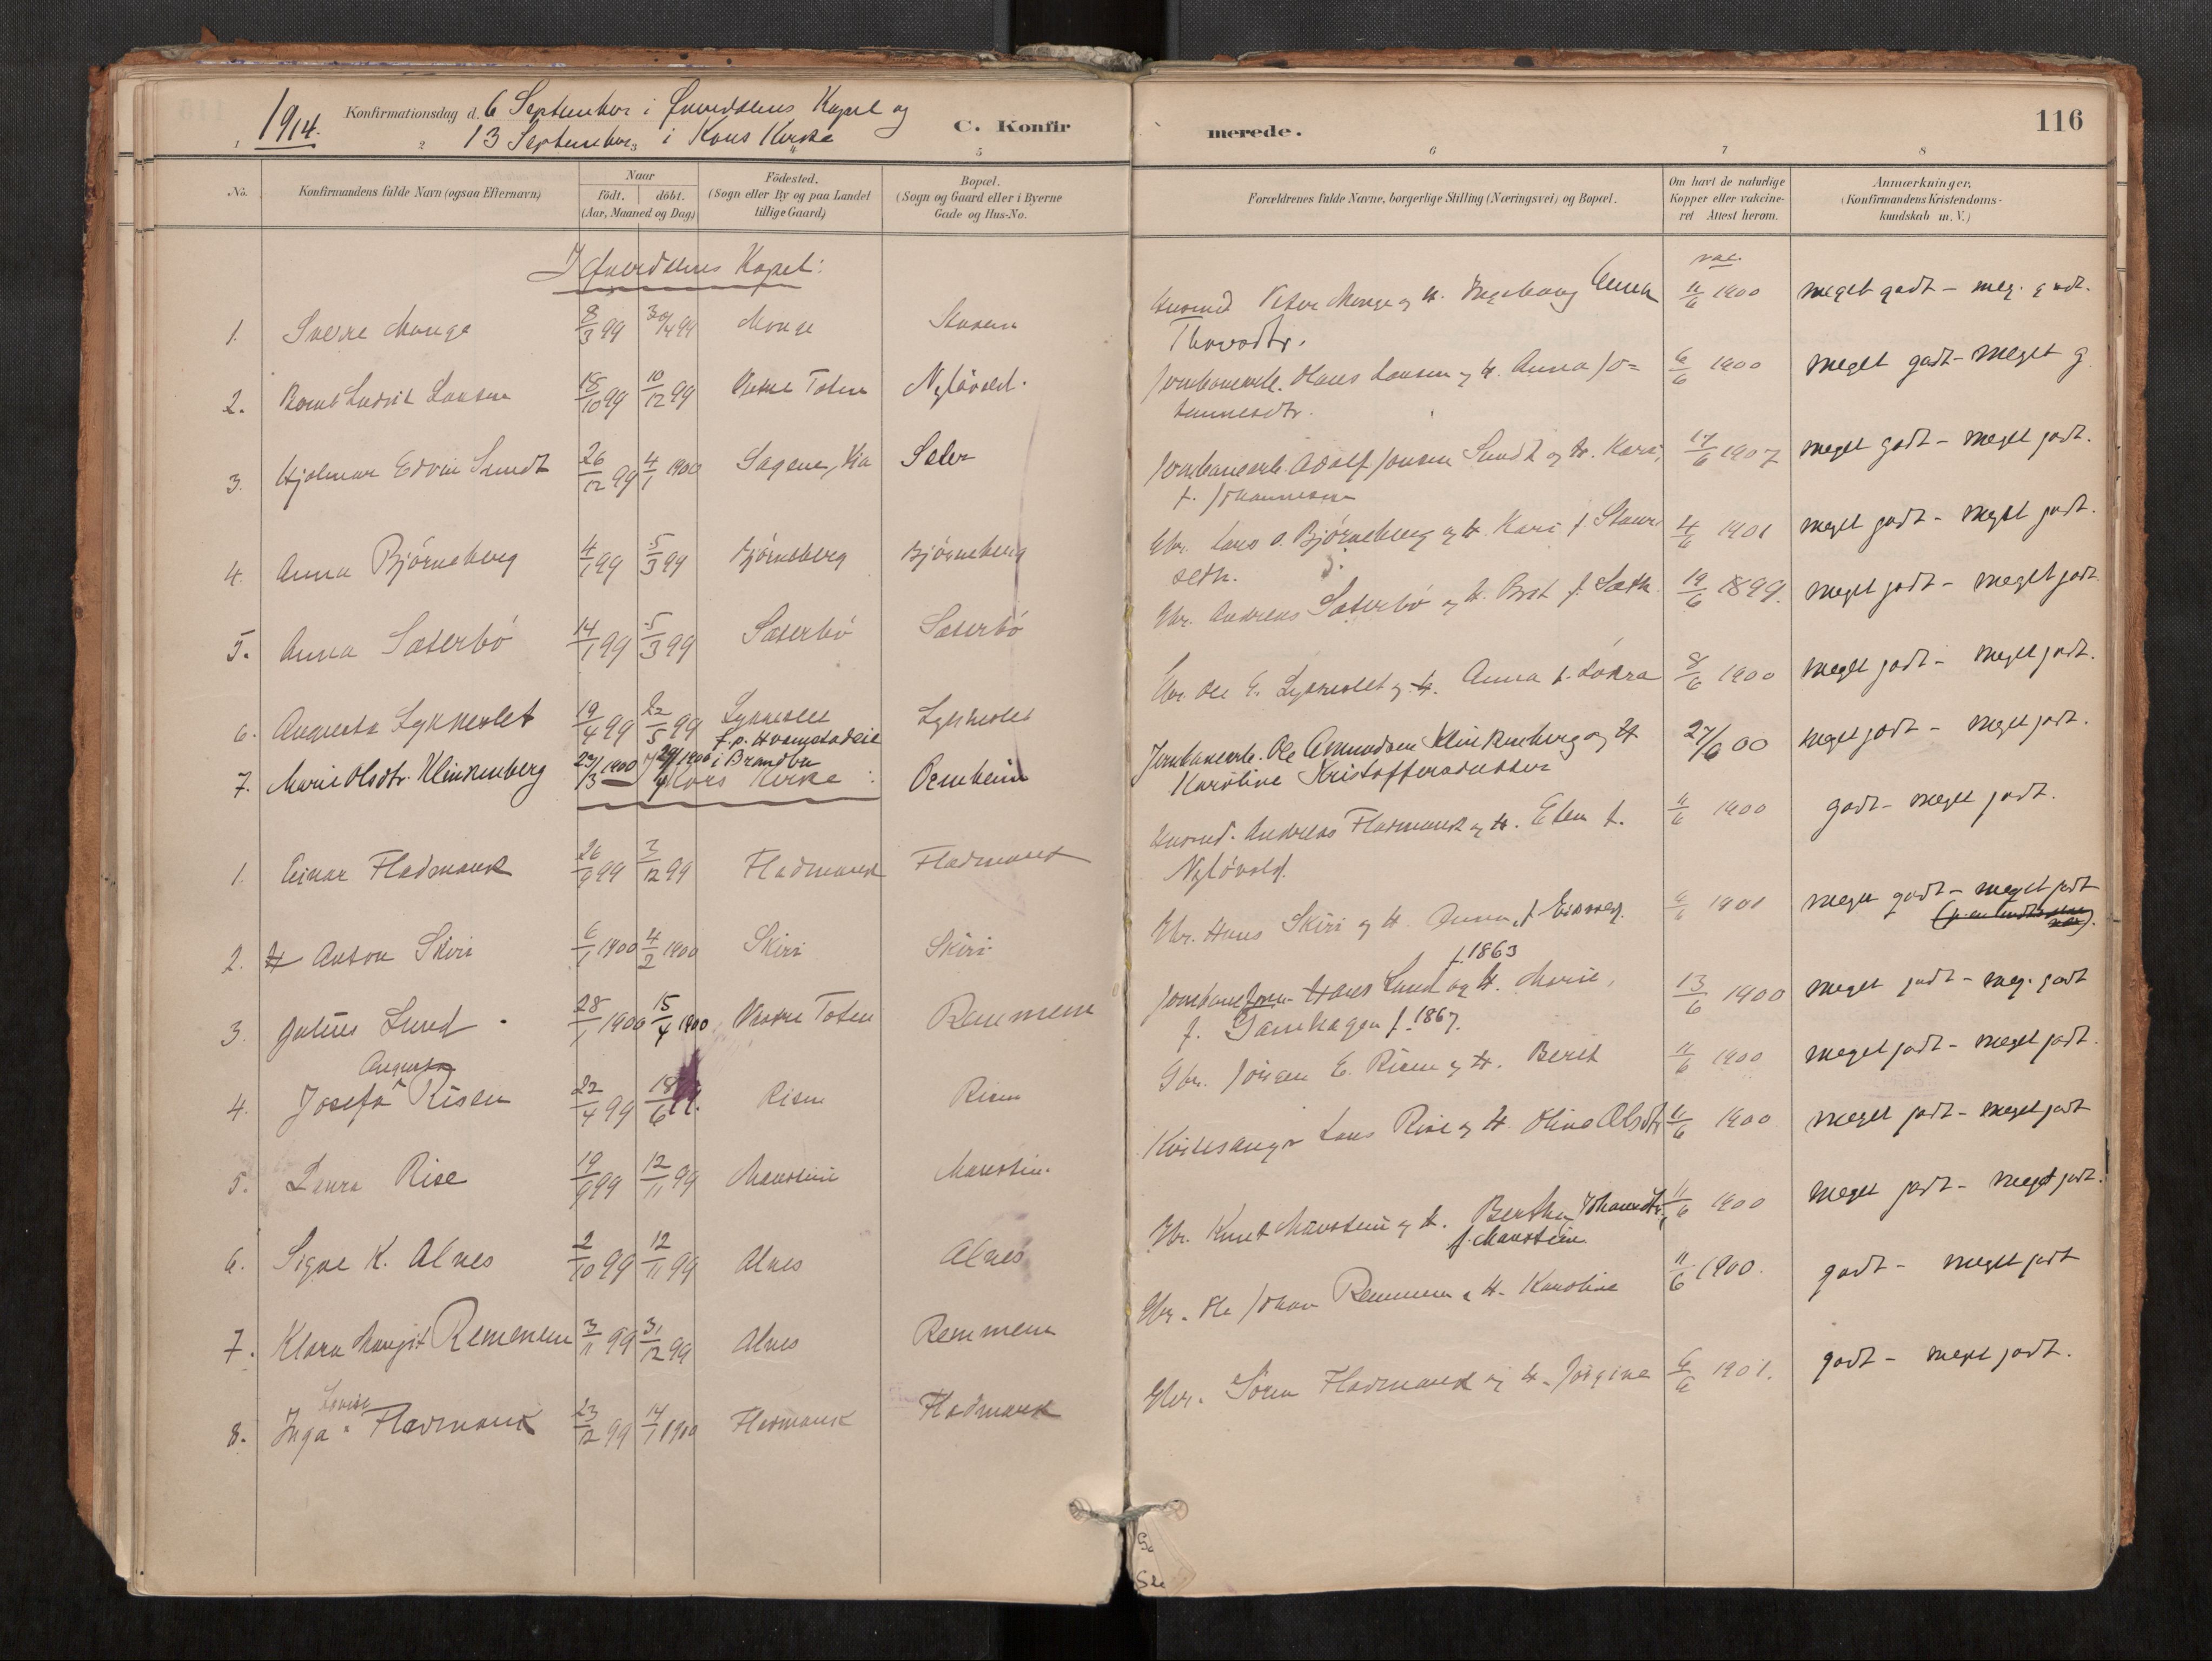 1914. Konfirmationsdag d. 6 September i Øverdalens Kapel og
13 September i Kors Kirke
C. Konfirmerede.
116
1 2 3 4 5 6 7 8
No.
Konfirmandens fulde Navn (ogsaa Efternavn)
Naar
födt. döbt.
(Aar, Maaned og Dag)
Födested.
(Sogn eller By og paa Landet
tillige Gaard)
Bopæl.
(Sogn og Gaard eller i Byerne
Gade og Hus-No.
Forældrenes fulde Navne, borgerlige Stilling (Næringsvei) og Bopæl.
Om havt de naturlige
Kopper eller vakcine-
ret Attest herom.
Anmærkninger,
(Konfirmandens Kristendoms-
kundskab m. V.)
I Øverdalens Kapel:
vac.
1. Sverre Monge 8/3 99 30/4 99 Monge Husmd Peter Monge og H. Ingeborg Anna 11/6 1900 meget godt - meg. godt.
Thorsdtr.
2. Bernt Ludvik Larsen 18/10 99 10/12 99 Vestre Toten Nyløvold. Jernbanearb. Hans Larsen og H. Anna Jo= 6/6 1900 meget godt - meget g
hannesdtr.
3. Hjalmar Edvin Sundt 26/12 99 4/1 1900 Sagene, Kra Sæter Jernbanearb. Adolf Jonsen Sundt og H. Kari, 17/6 1907 meget godt - meget godt.
f. Johannesen
4. Anna Bjørneberg 4/1 99 5/3 99 Bjørneberg Bjørneberg Gbr. Lars O. Bjørneberg og H. Kari f. Staur 4/6 1901 meget godt - meget godt.
seth.
5. Anna Sæterbø 14/1 99 5/3 99 Sæterbø Sæterbø Gbr. Andreas Sæterbø og H. Brit f. Sæth. 19/6 1899. meget godt - meget godt.
6. Augusta Lykkeslet 19/4 99 22/5 99 Lykkeslet Lykkeslet Gbr. Ole E. Lykkeslet og H. Anna f. Løkra 8/6 1900 meget godt - meget godt.
f. p. Hvamstadeie
i Brandbu
7. Marie Olsdtr. Klinkenberg 23/3 1900 29/4 1900 Jernbanearb. Ole Amundsen Klinkenberg og H 27/6 00 meget godt - meget godt.
Karoline Kristoffersdatter
Kors Kirke:
1. Einar Fladmark 26/9 99 3/12 99 Fladmark Fladmark Husmd. Andreas Fladmark og H. Elen f. 11/6 1900 godt - meget godt.
Nyløvold.
2. H Anton Skiri 6/1 1900 4/2 1900 Skiri Skiri Gbr. Hans Skiri og H. Anna, f. 6/6 1901 meget godt - meget godt
3. Julius Lund 28/1 1900 15/4 1900 Vestre Toten Remmem Hans Lund f. 1863 og H. Marie, 13/6 1900 meget godt - meg. godt
f. f. 1867.
4. Josefa Augusta Risen 22/4 99 18/6 Risen Risen Gbr. Jørgen E. Risen og H. Berit 11/6 1900 meget godt - meget godt.
5. Laura Rise 19/9 99 12/11 99 Marstein Marstein. Kirkesanger Lars Rise og H. Oline Olsdtr 11/6 1900 meget godt - meget godt
6. Signe K. Alnes 2/10 99 12/11 99 Alnes Alnes Gbr. Knut Marstein og H. Bertha Johansdtr., 11/6 1900 meget godt - meget godt.
f. Marstein.
7. Klara Margit Remmem 3/11 99 31/12 99 Alnes Remmem Gbr. Ole Johan Remmem & H. Karoline 11/6 1900. godt - meget godt
8. Inga Lovise Fladmark 23/12 99 14/1 1900 Fladmark Fladmark Gbr. Søren Fladmark og H. Jørgine 6/6 1901. godt - meget godt.